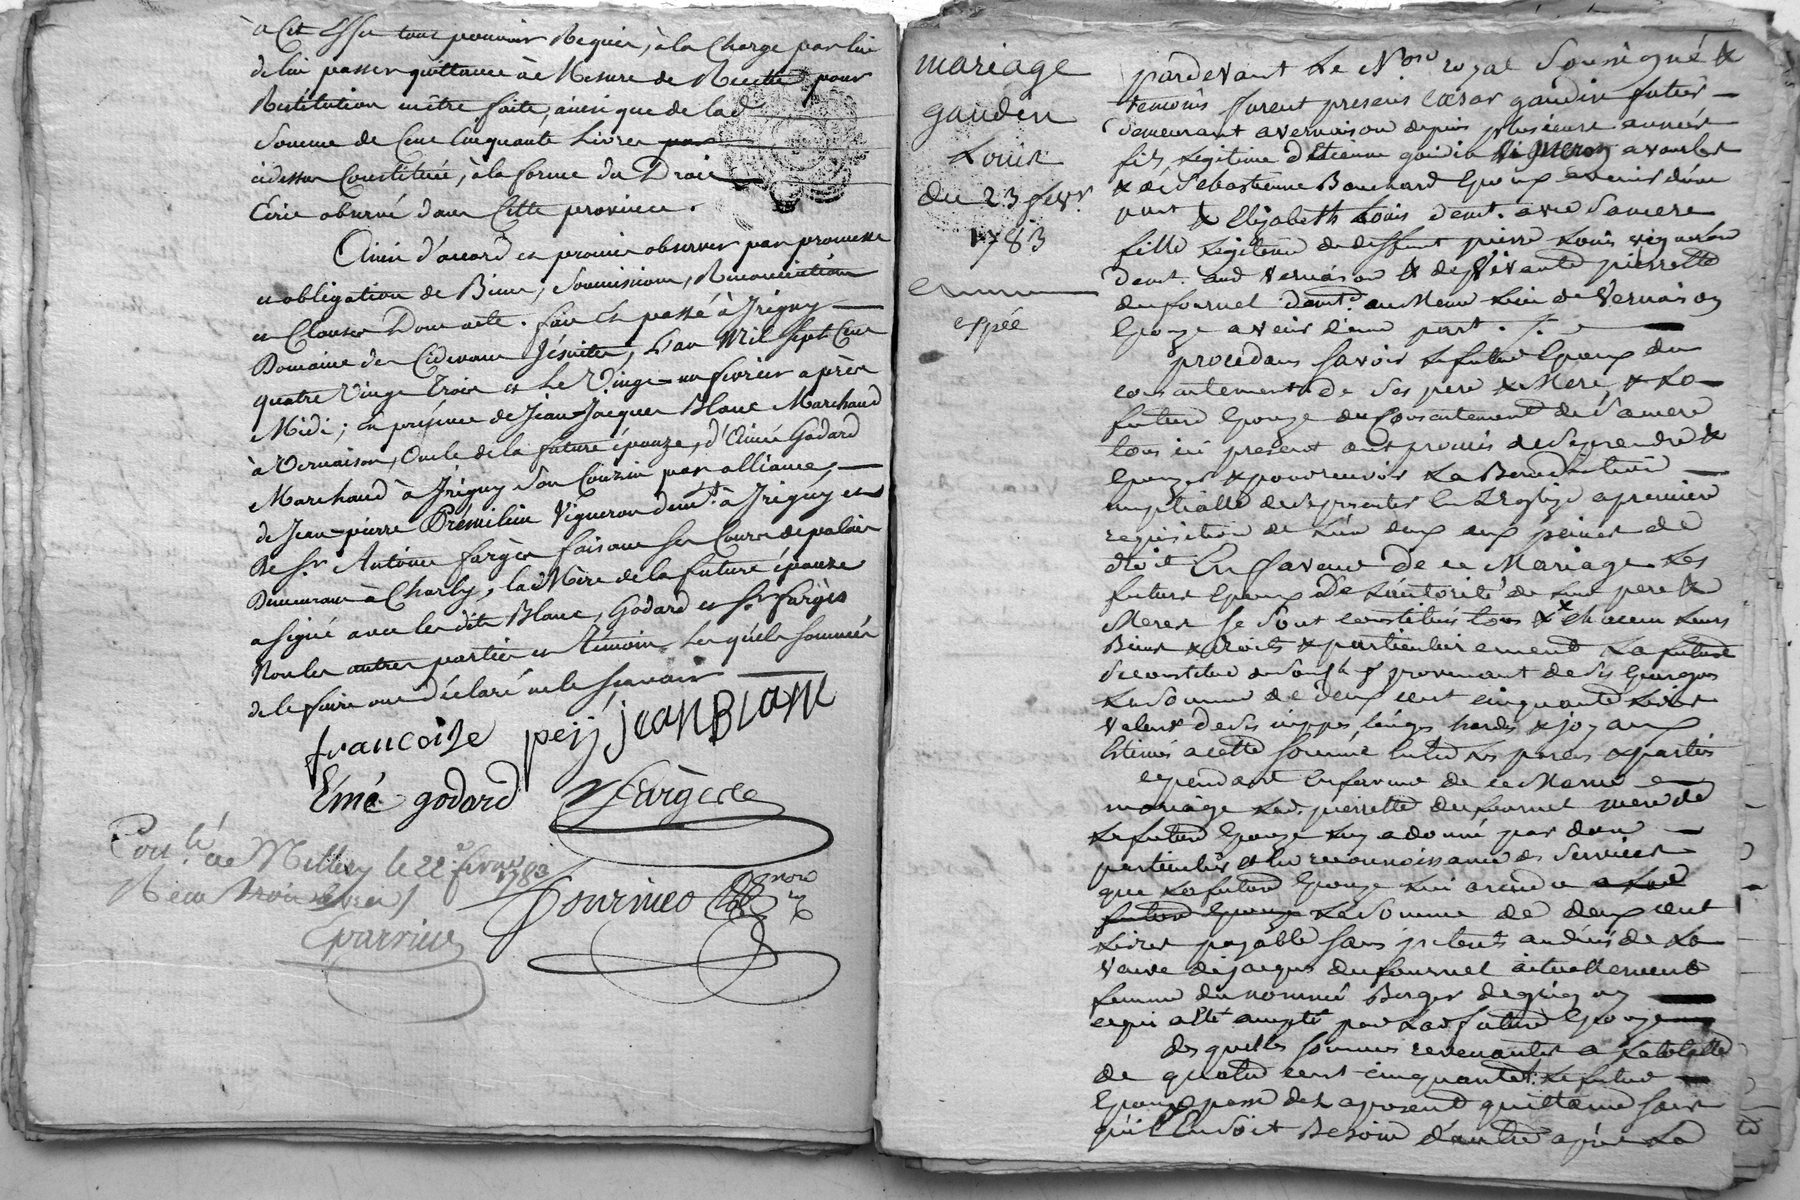 à cet effet tout pouvoir Requis, à la Charge par lui
de lui passer quittance à Mesure de Recette pour
Restitution m'être faite, ainsi que de lad
Somme de Cent Cinquante Livres
cidessus Constituée, à la forme du Droit
Ecrit observé dans Cette province.
Ainsi d'accord et promis observer par promesse
et obligation de Biens, Soumissions, Renonciations
et Clauses Dont acte. fait et passé à Irigny
Domaine des Cidevant Jésuites, L'an Mil Sept Cent
quatre Vingt Trois et Le Vingt un fevrier après
Midi; en présence de Jean Jacques Blanc Marchand
à Vernaison, Oncle de la future épouze, d'Aimé Godard
Marchand à Irigny Son Couzin par alliance,
de Jean pierre Prémilieu Vigneron demt. à Irigny et
De Sr. Antoine fargès faisant Ses Cours de palais
Demeurant à Charly, la Mère de la future épouze
a signé avec les dits Blanc, Godard et Sr. fargès
Non les autres parties et témoin Les quels Sommés
de le faire ont Déclaré ne le Scavoir
francoise pey jean BLANC
Émé godard Fargès
Conlé. à Millery le 22 fevrier 1783
Reçu trois livres
mariage
gaudin
Louis
du 23 fevr.
1783
expée
pardevant Le Nore royal Soussigné &
temoins furent presens Cæsar gaudin futur
demeurant a vernaison depuis plusieurs années
fils Legitime d'Etienne gaudin vigneron
& de Sebastienne Bouchard Epoux avenir d'une
part & Elizabeth Louis demt. avec Sa mere
fille Legitime de deffunt pierre Louis vigneron
demt. aud vernaison & de vivante pierrette
dufournel demte au Meme Lieu de Vernaison
Epouze avenir d'autre part.
procedans Savoir Le futur Epoux du
consentement de Ses pere & Mere, & La
future Epouze du Consentement de Sa mere
tous ici presents ont promis de Se prendre &
Epouzer & pour recevoir La Benediction
nuptialle de Se presenter En L'Eglize a premiere
requisition de L'un deux aux peines de
droit En faveur de ce Mariage Les
futurs Epoux De L'autorité de Leurs pere &
Meres Se Sont constitués tous & chacun Leurs
Biens & droits & particulierement La future
Se constitue provenant de Ses Epargnes
La Somme de deux cent cinquante Livres
valeur de Ses nippes linges hardes & joyaux
Estimés a cette Somme Entre les parties
Cependant En faveur de ce Meme
mariage Lad. pierrette dufournel mere de
La future Epouze Luy a donné par don
particulier & En reconnoissance des Services
que La future Epouze Lui a rendu a Lad
future Epouze La Somme de deux cent
Livres payable Sans interets au deces de La
veuve de jacques dufournel actuellement
femme du nommé Berger de grigny
ce qui a Eté accepté par Lad future Epouze
des quelles Sommes revenantes a La totalle
de quatre cent cinquante Le futur
Epoux passe des a present quittance Sans
qu'il En Soit Besoin d'autre après La